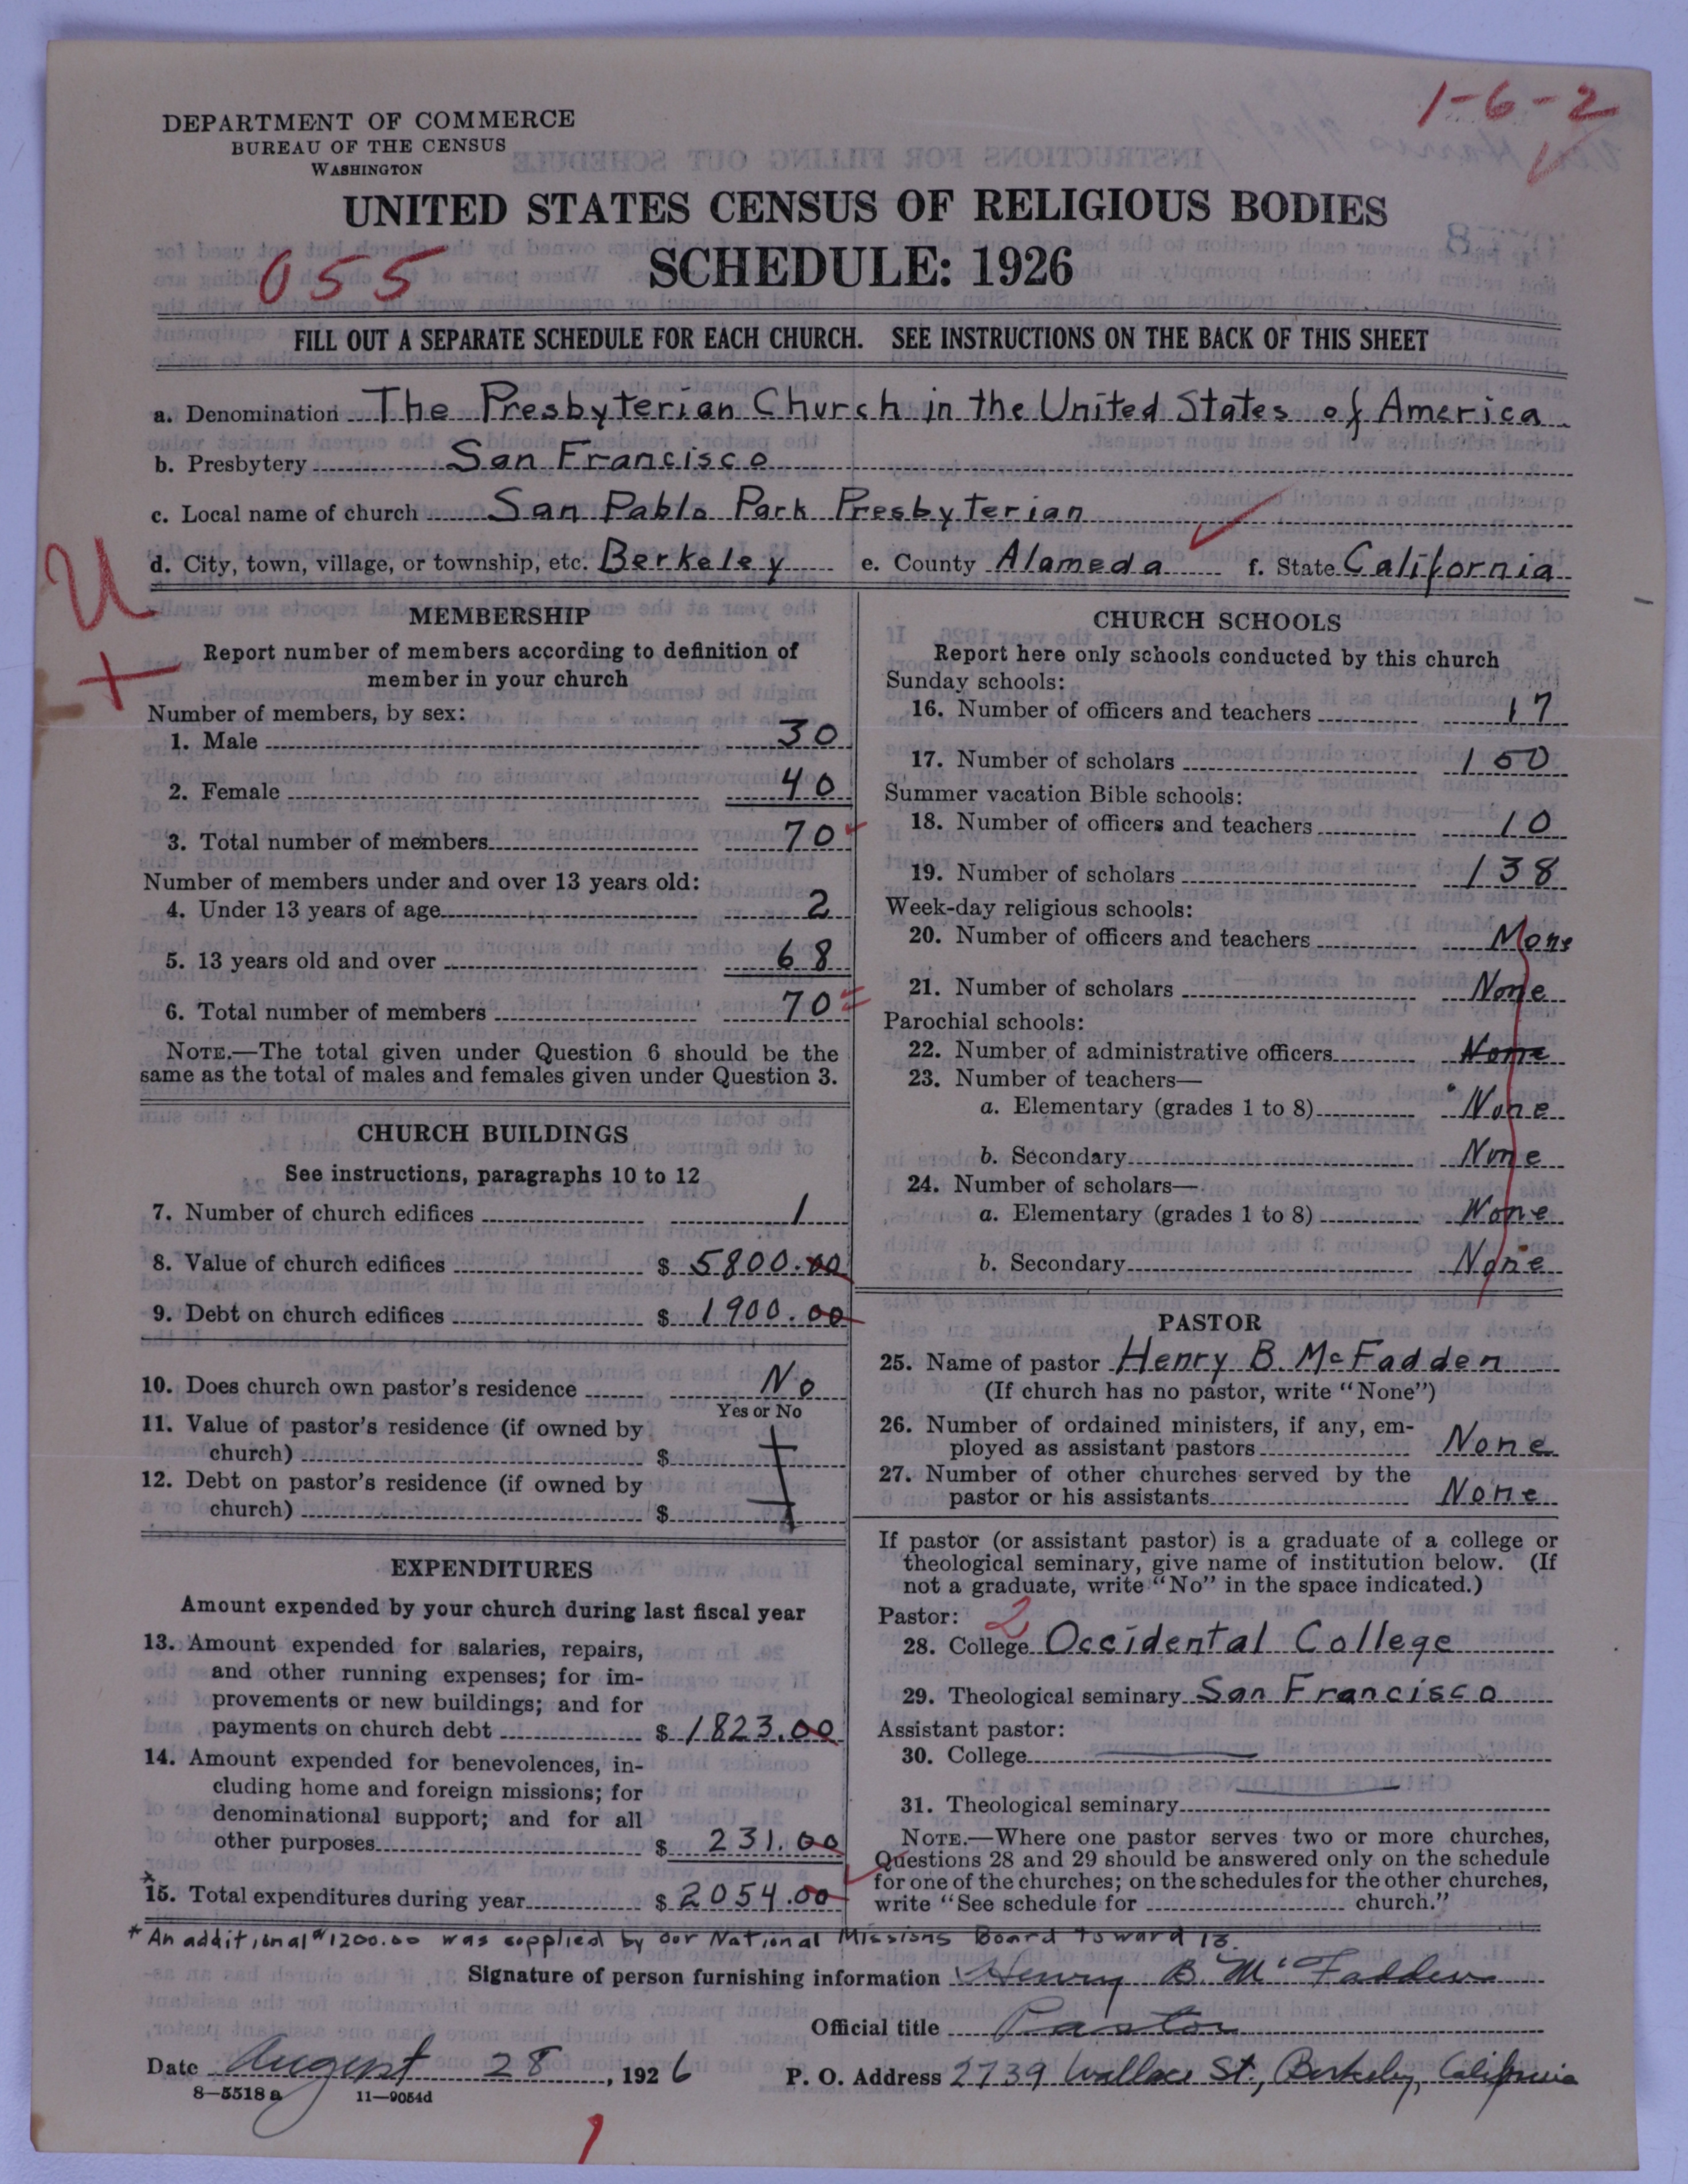 1-6-2
DEPARTMENT OF COMMERCE
BUREAU OF THE CENSUS
WASHINGTON
UNITED STATES CENSUS OF RELIGIOUS BODIES
SCHEDULE: 1926
055
FILL OUT A SEPARATE SCHEDULE FOR EACH CHURCH. SEE INSTRUCTIONS ON THE BACK OF THIS SHEET
a. Denomination The Presbyterian Church in the United States of America
b. Presbytery San Francisco
c. Local name of church San Pablo Park Presbyterian
d. City, town, village, or township, etc. Berkeley e. County Alameda f. State California
U
MEMBERSHIP
Report number of members according to definition of
member in your church
Number of members, by sex:
1. Male 30
2. Female 40
3. Total number of members 70
Number of members under and over 13 years old:
4. Under 13 years of age 2
5. 13 years old and over 68
6. Total number of members 70
NOTE.—The total given under Question 6 should be the
same as the total of males and females given under Question 3.
CHURCH BUILDINGS
See instructions, paragraphs 10 to 12
7. Number of church edifices 1
8. Value of church edifices $ 5800.00
9. Debt on church edifices $ 1900.00
10. Does church own pastor's residence No
Yes or No
11. Value of pastor's residence (if owned by
church) $
12. Debt on pastor's residence (if owned by
church) $
EXPENDITURES
Amount expended by your church during last fiscal year
13. Amount expended for salaries, repairs,
and other running expenses; for im-
provements or new buildings; and for
payments on church debt $ 1823.00
14. Amount expended for benevolences, in-
cluding home and foreign missions; for
denominational support; and for all
other purposes $ 231.00
*15. Total expenditures during year $ 2054.00
CHURCH SCHOOLS
Report here only schools conducted by this church
Sunday schools:
16. Number of officers and teachers 17
17. Number of scholars 150
Summer vacation Bible schools:
18. Number of officers and teachers 10
19. Number of scholars 138
Week-day religious schools:
20. Number of officers and teachers None
21. Number of scholars None
Parochial schools:
22. Number of administrative officers None
23. Number of teachers—
a. Elementary (grades 1 to 8) None
b. Secondary None
24. Number of scholars—
a. Elementary (grades 1 to 8) None
b. Secondary None
PASTOR
25. Name of pastor Henry B. McFadden
(If church has no pastor, write "None")
26. Number of ordained ministers, if any, em-
ployed as assistant pastors None
27. Number of other churches served by the
pastor or his assistants None
If pastor (or assistant pastor) is a graduate of a college or
theological seminary, give name of institution below. (If
not a graduate, write "No" in the space indicated.)
Pastor: 2
28. College Occidental College
29. Theological seminary San Francisco
Assistant pastor:
30. College
31. Theological seminary
NOTE.—Where one pastor serves two or more churches,
Questions 28 and 29 should be answered only on the schedule
for one of the churches; on the schedules for the other churches,
write "See schedule for church."
* An additional $1200.00 was supplied by our National Missions Board toward 13.
Signature of person furnishing information Henry B. McFadden
Official title Pastor
Date August 28, 1926 P. O. Address 2739 Wallace St., Berkeley, California
8—5518a 11—9054d
1